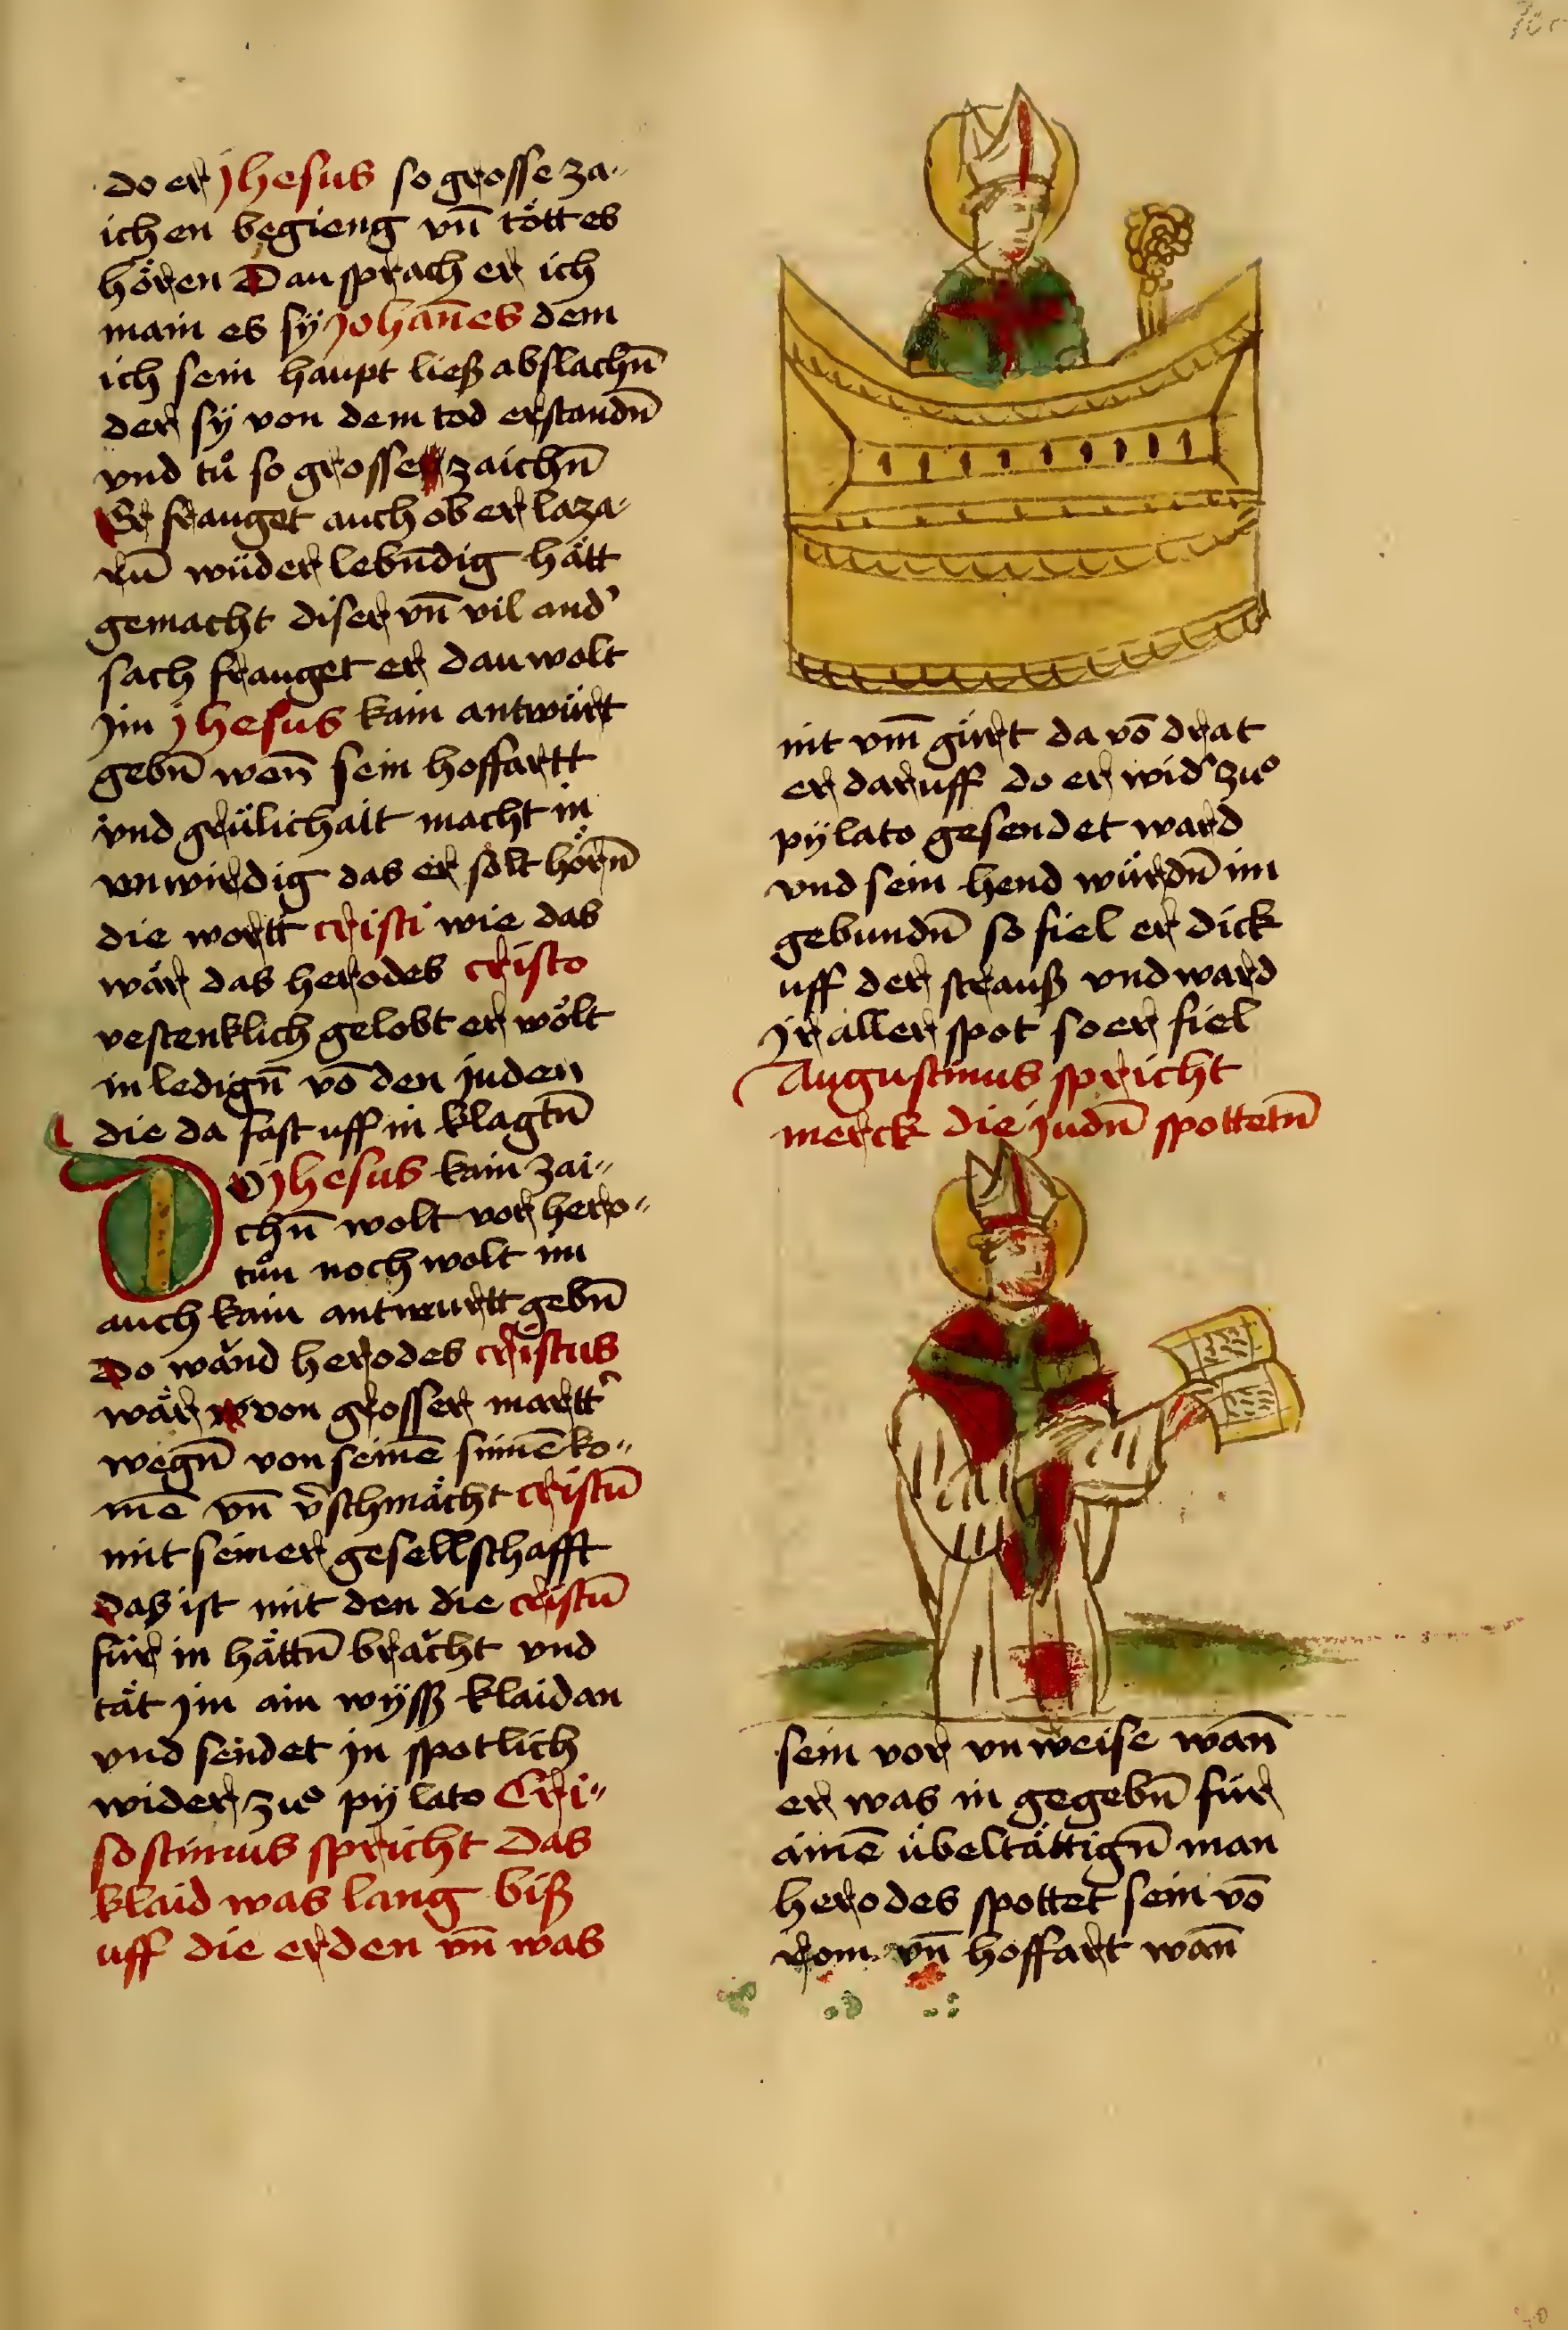 do er jhesus so grosse za„
ichen begieng vn̄ tött es
hören Dau sprach er ich
main es sÿ johan̄es dem
ich sein haupt ließ abslachn̄
der sÿ von dem tod erstandn̄
vnd tů so grosse zaichn̄
Er frauget auch ob er laza„
rū wider lebn̄dig hätt
gemacht diser vn̄ vil and'
sach frauget er dau wolt
jm jhesus kain antwürt
gebn̄ wan̄ sein hoffartt
vnd grülichait macht in
vnwirdig das er solt hörn̄
die wortt cristi wie das
wär das herodes cristo
vestenklich gelobt er wölt
in ledign̄ vō den juden
die da fast uff in klagtn̄
DO jhesus kain zai„
chn̄ wolt vor hero„
tůn noch wolt im
auch kain antwurtt gebn̄
Do wänd herodes cristus
wär von grosser martt'
wegn̄ von seinē sinnē ko„
mē vn̄ v'schmächt cristū
mit seiner gesellschafft
Das ist mit den die cristū
für in hättn̄ brächt vnd
tät jm ain wÿsß klaid an
vnd sendet jn spotlich
wider zuo pÿlato Cri„
sostimus spricht das
klaid was lang biß
uff die erden vn̄ was
nit vm̄ gürt da vō drat
er daruff do er wid' zuo
pÿlato gesendet ward
vnd sein hend würdn̄ im
gebundn̄ so fiel er dick
uff der strauß vnd ward
jr aller spot so er fiel
Augustinus spricht
merck die judn̄ spottetn̄
sein vor vnweise wan̄
er was in gegebn̄ für
ainē übeltättign̄ man
herodes spottet sein vō
rom vn̄ hoffart wan̄